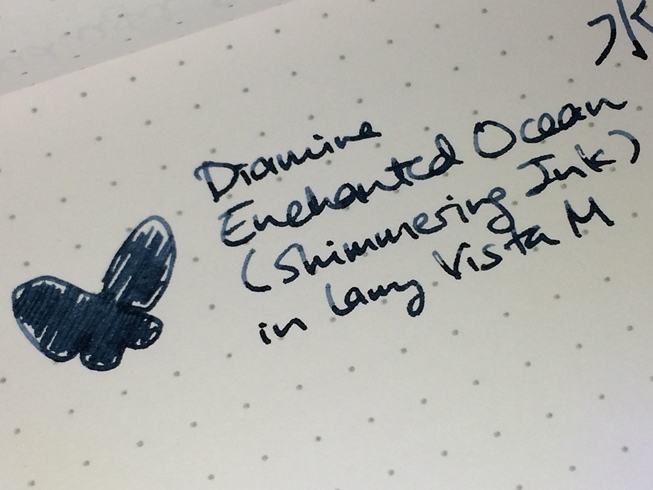 水
Diamine
Enchanted Ocean
(Shimmering Ink)
in Lamy Vista M